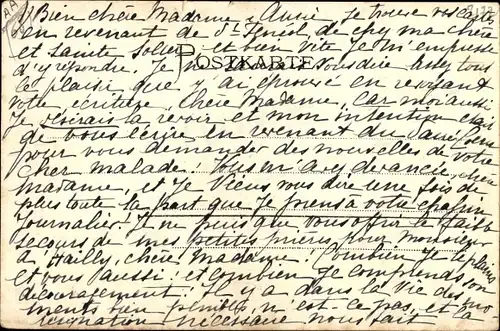 Bien chère Madame & Amie. Je trouve vos cartes
en revenant de St
et sainte et bien vite Je m'empresse
d'y répondre. Je ne vous dire assez tout
POSTKARTE
le plaisir que j'ai éprouvé en revoyant
votre écriture, chère Madame, car moi aussi
Je désirais la revoir et mon intention était
de vous écrire en revenant du
pour vous demander des nouvelles de votre
cher malade! Vous m'avez devancée, chère
madame, et Je viens vous dire une fois de
plus toute la part que Je prends à votre chagrin
Journalier! Je ne puis que vous offrir le faible
secours de mes petites prières pour Monsieur
d'Hailly, chère madame! Combien Je le plains
et vous aussi! et combien Je comprends son
découragement! Il y a dans la vie des mo
ments bien pénibles, n'est ce pas, et la
résignation nécessaire nous fait